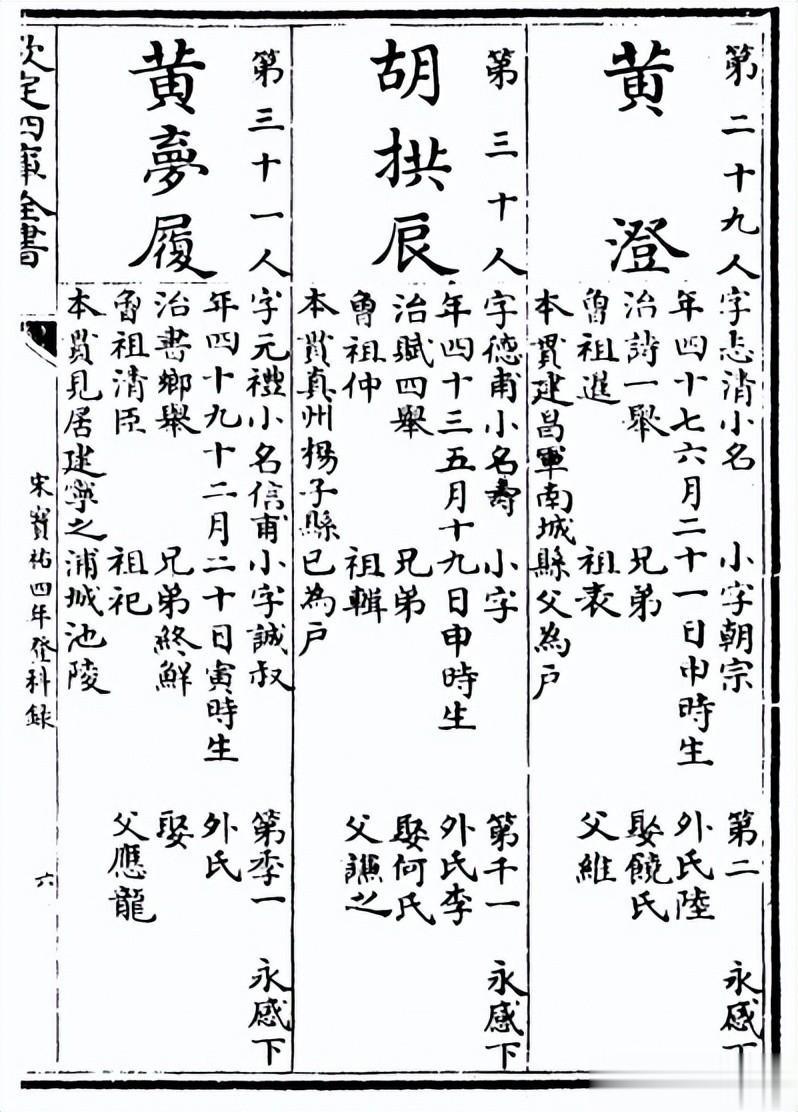 第二十九人
黄澄
字志清小名 小字朝宗 第二 永感下
年四十七六月二十一日申時生 外氏陸
治詩一舉 兄弟 娶饒氏
曾祖進 祖表 父維
本貫建昌軍南城縣父為户
第三十人
胡拱辰
字德甫小名壽 小字 第千一 永感下
年四十三五月十九日申時生 外氏李
治賦四舉 兄弟 娶何氏
曾祖仲 祖輯 父謙之
本貫真州楊子縣已為户
第三十一人
黄夢履
字元禮小名信甫小字誠叔 第季一 永感下
年四十九十二月二十日寅時生 外氏
治書鄉舉 兄弟終鮮 娶
曾祖清臣 祖祀 父應龍
本貫見居建寧之浦城池陵
欽定四庫全書
宋寳祐四年登科錄
六